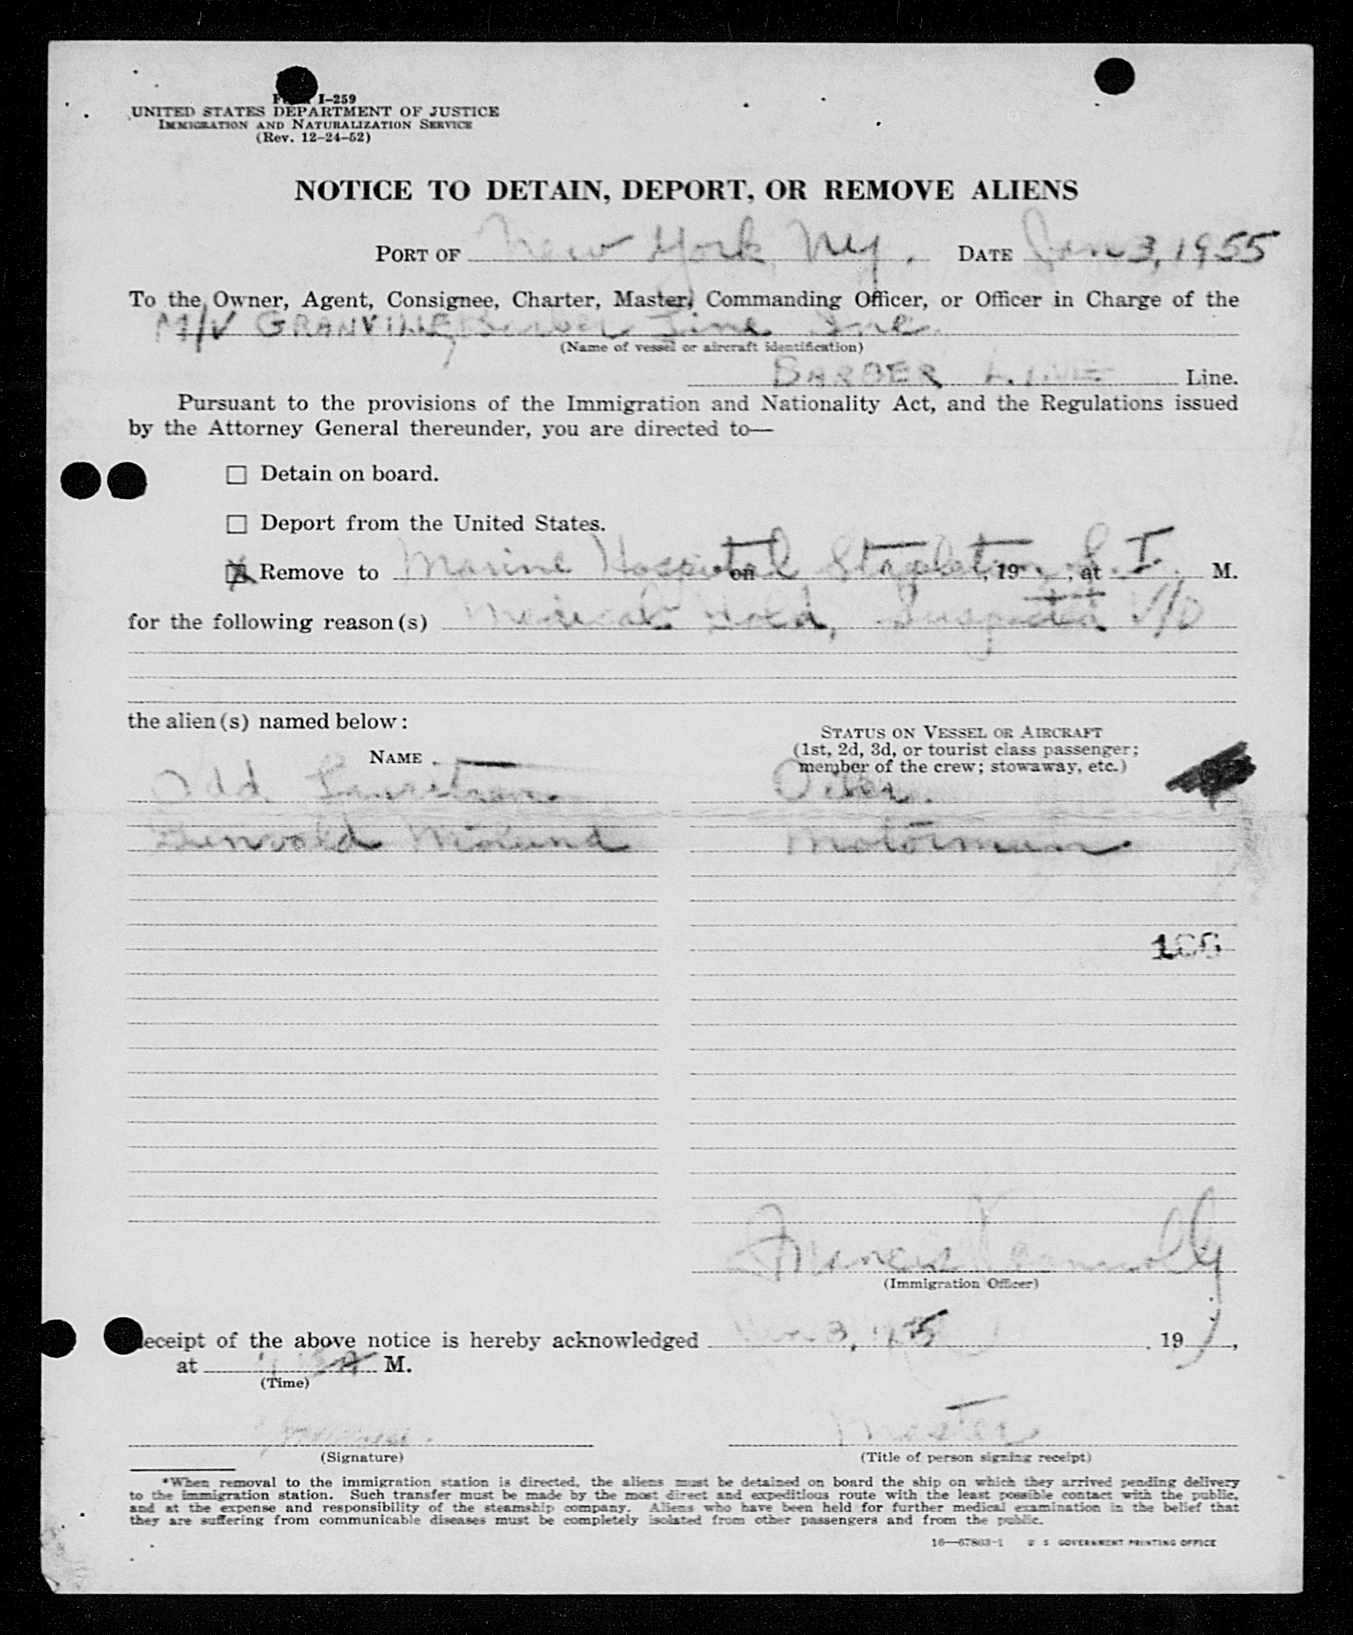 Form I-259
UNITED STATES DEPARTMENT OF JUSTICE
IMMIGRATION AND NATURALIZATION SERVICE
(Rev. 12-24-52)
NOTICE TO DETAIN, DEPORT, OR REMOVE ALIENS
PORT OF New York, NY. DATE Jan 3, 1955
To the Owner, Agent, Consignee, Charter, Master, Commanding Officer, or Officer in Charge of the
M/V GRANVILLE, Barber Line Inc.
(Name of vessel or aircraft identification)
BARBER LINE Line.
Pursuant to the provisions of the Immigration and Nationality Act, and the Regulations issued
by the Attorney General thereunder, you are directed to—
Detain on board.
Deport from the United States.
Remove to Marine Hospital Stapleton, S. I. on , 19 , at M.
for the following reason(s) Medical Hold, Suspected V/D
the alien(s) named below:
STATUS ON VESSEL OR AIRCRAFT
(1st, 2d, 3d, or tourist class passenger;
member of the crew; stowaway, etc.)
NAME
Odd Oiler.
Motorman
Francis
(Immigration Officer)
Receipt of the above notice is hereby acknowledged Jan 3, 1955, 19 ,
at M.
(Time)
Master
(Signature) (Title of person signing receipt)
*When removal to the immigration station is directed, the aliens must be detained on board the ship on which they arrived pending delivery
to the immigration station. Such transfer must be made by the most direct and expeditious route with the least possible contact with the public,
and at the expense and responsibility of the steamship company. Aliens who have been held for further medical examination in the belief that
they are suffering from communicable diseases must be completely isolated from other passengers and from the public.
16—67803-1 U S GOVERNMENT PRINTING OFFICE